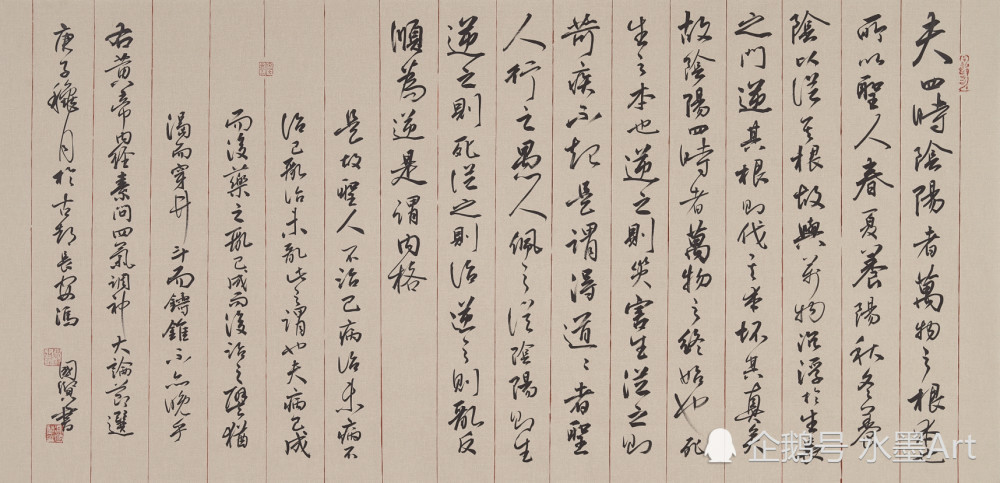 夫四時陰陽者萬物之根本也
所以聖人春夏養陽秋冬養
陰以從其根故與萬物沉浮於生長
之門逆其根則伐其本坏其真矣
故陰陽四時者萬物之終始也死
生之本也逆之則災害生從之則
苛疾不起是謂得道〻者聖
人行之愚人佩之從陰陽則生
逆之則死從之則治逆之則亂反
順為逆是謂内格
是故聖人不治已病治未病不
治已亂治未亂此之謂也夫病已成
而後藥之亂已成而後治之譬猶
渴而穿井斗而鑄錐不亦晚乎
右黃帝内經素問四氣調神大論節選
庚子穐月於古都長安馮
國賢書
企鹅号 水墨Art